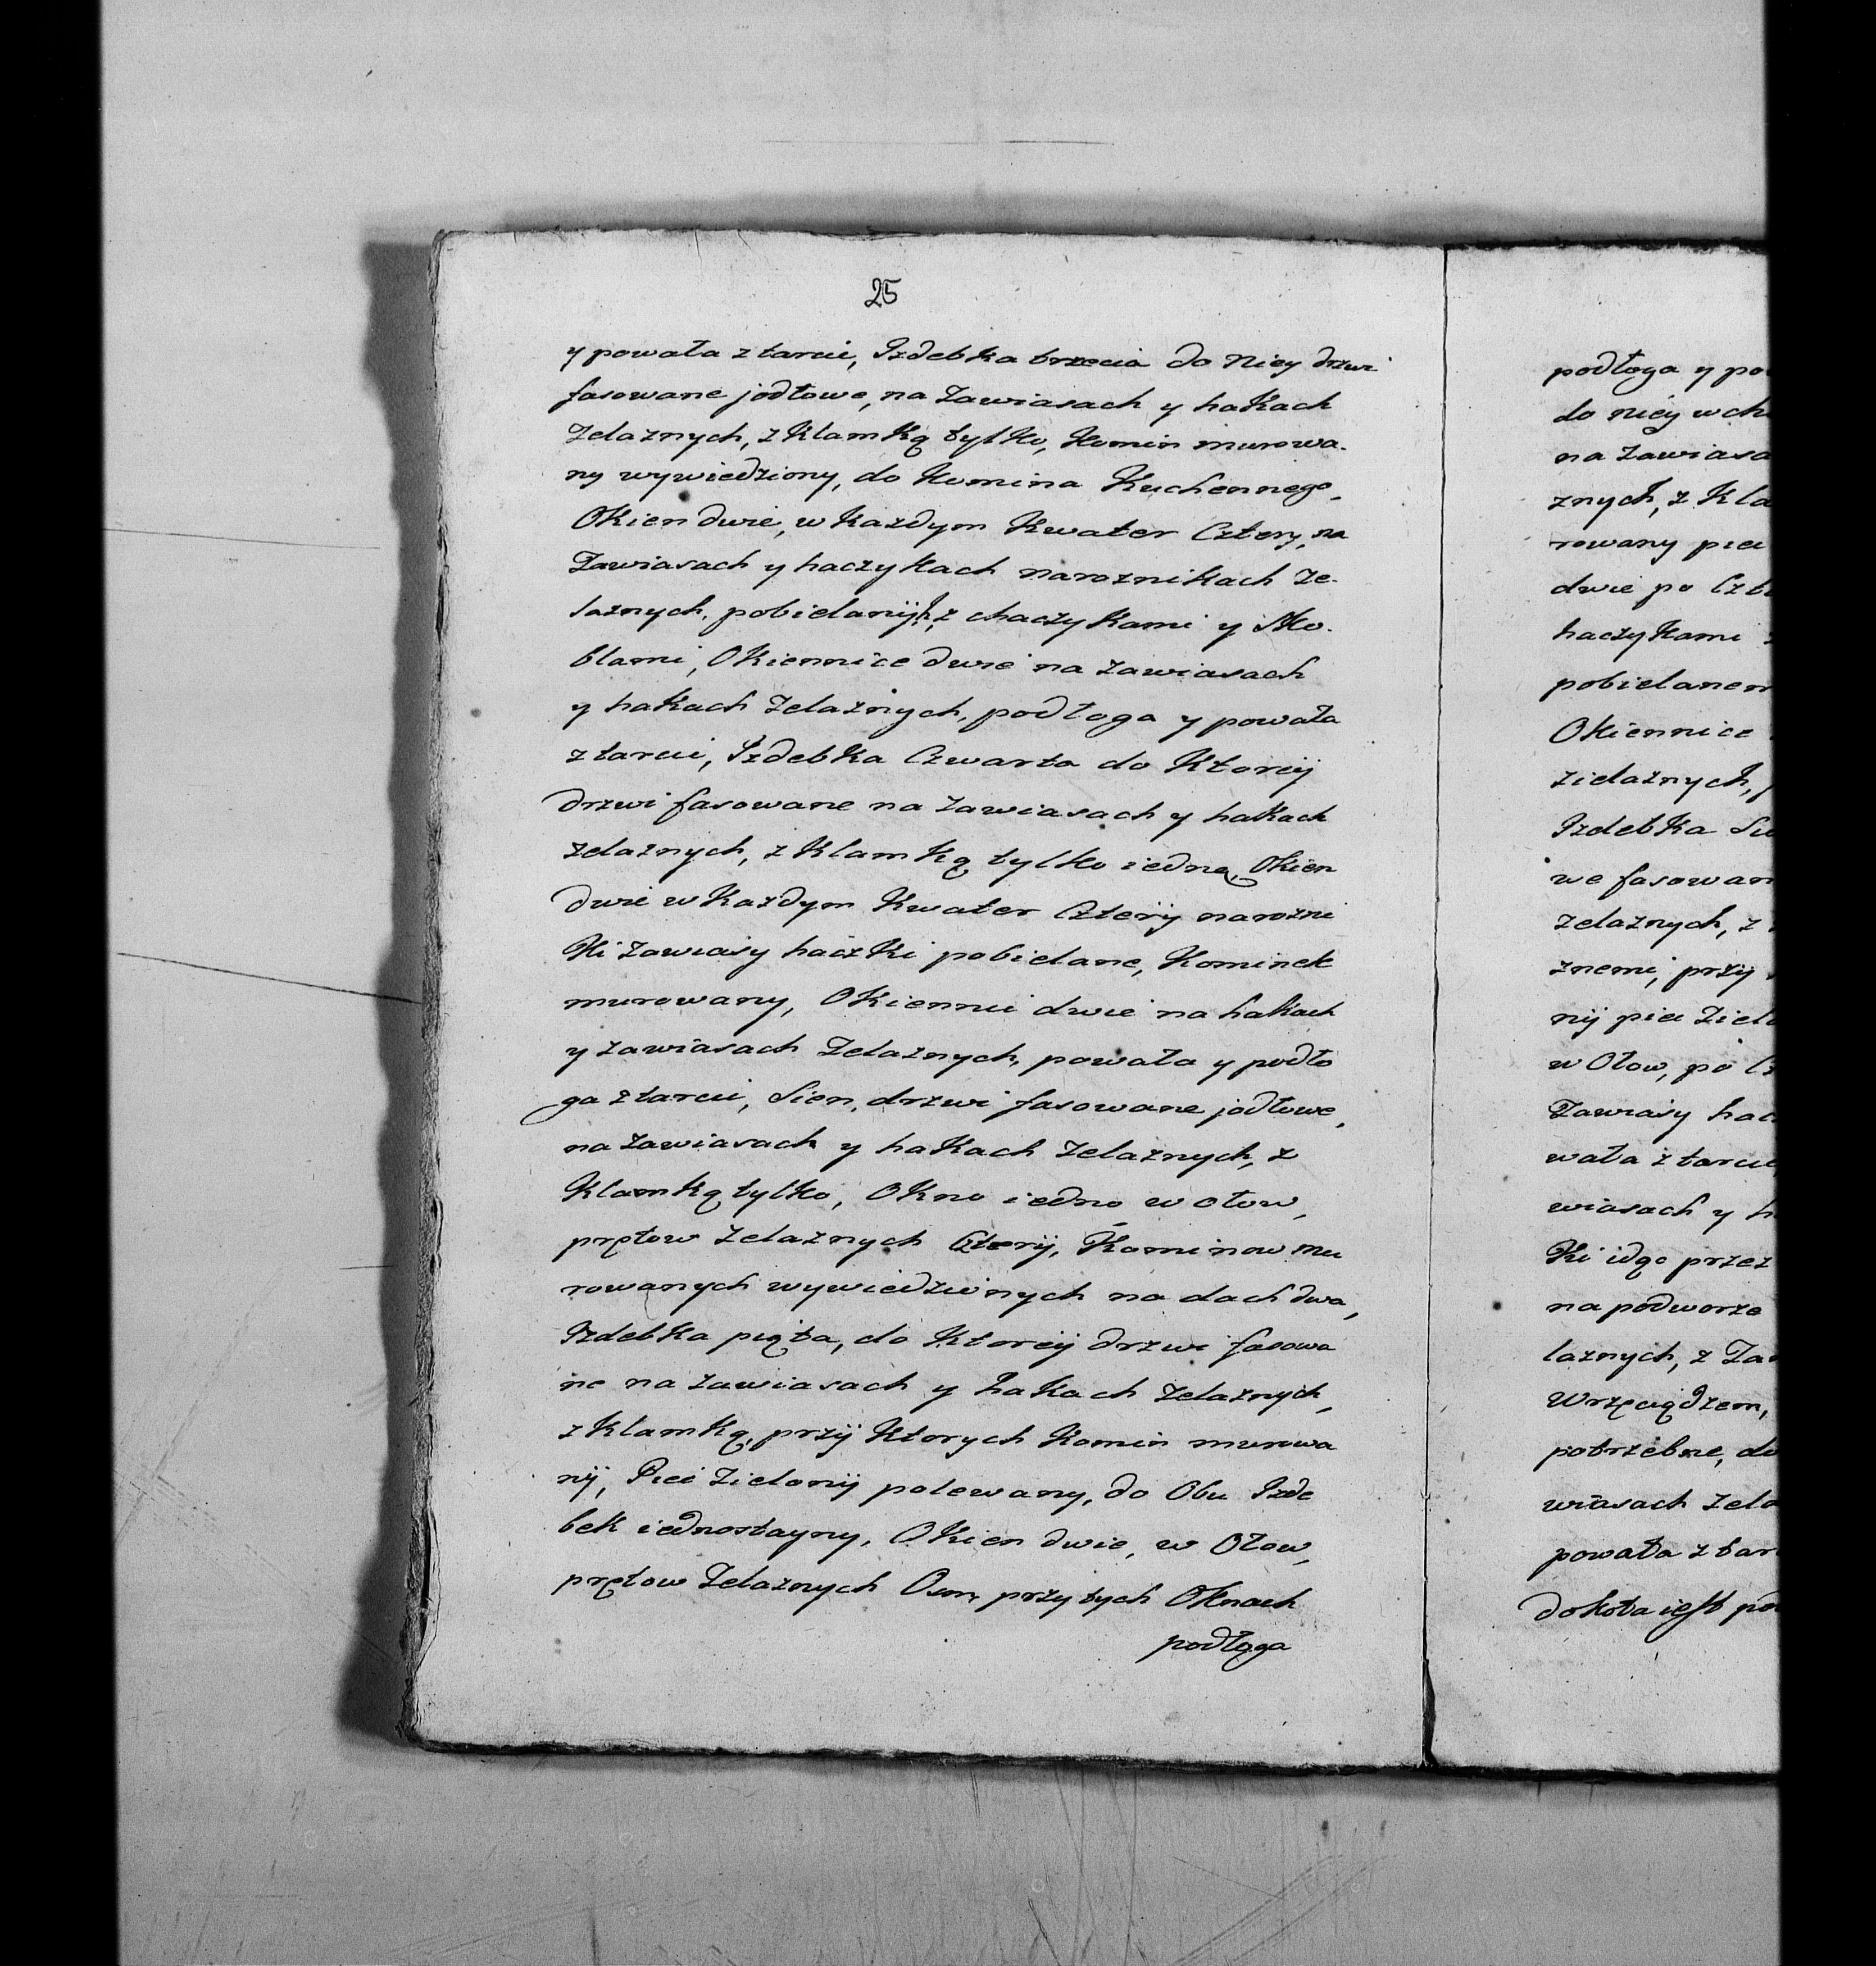 25
y powała z tarcic, Izdebka trzecia do Niey drzwi
fasowane jodłowe, na Zawiasach y hakach
Zelaznych, z Klamką tylko, Komin murowa-
ny wywiedziony, do Komina Kuchennego,
Okien dwie, w Każdym Kwater Cztery, na
Zawiasach y haczykach naroznikach Ze-
laznych, pobielanych, z chaczykami y Sko-
blami, Okiennice dwie na zawiasach
y hakach Zelaznych, podłoga y powała
z tarcic, Izdebka Czwarta do Ktorey
drzwi fasowane na zawiasach y hakach
zelaznych, z Klamką tylko iedną, Okien
dwie w Każdym Kwater Cztery narozni
Ki zawiasy haczki pobielane, Kominek
murowany, Okiennic dwie na hakach
y zawiasach Zelaznych, powała y podło
ga z tarcic, Sien, drzwi fasowane jodłowe,
na Zawiasach y hakach Zelaznych, z
Klamką tylko, Okno iedno w ołow,
prętow Zelaznych Cztery, Kominow mu
rowanych wywiedzionych na dach dwa,
Izdebka piąta, do Ktorey drzwi fasowa
ne na zawiasach y hakach zelaznych,
z Klamką, przy Ktorych Komin murowa
ny, Piec Zielony polewany, do Obu Izde
bek iednostayny, Okien dwie, w Ołow,
prętow Zelaznych Osm, przy tych Oknach
podłoga
podłoga y po
do niey wch
na Zawiasa
znych, z Kla
rowany piec
dwie po Czt
haczykami
pobielanem
Okiennice
zielaznych,
Izdebka
we fasowan
zelaznych, z
znemi, przy
ny piec Ziel
w Ołow, po
Zawiasy hac
wała z tarcic
wiasach y h
Ki idąc przez
na podworze
laznych, z Za
Wrzeciądzem,
potrzebne, do
wiasach zela
powała z tar
dokoła iest po